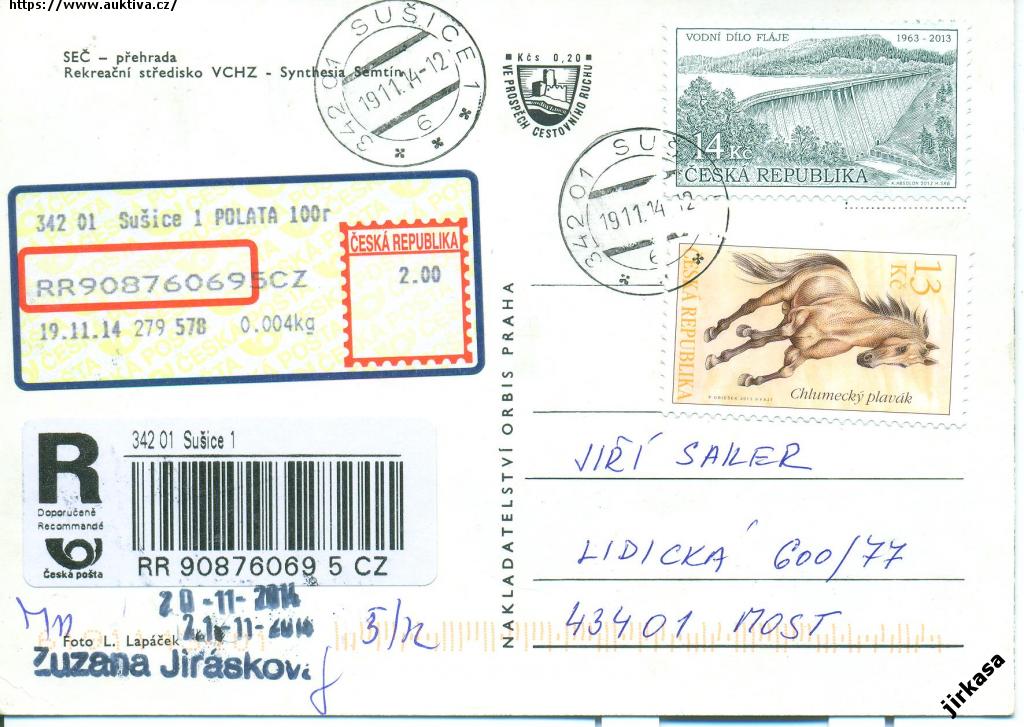 https://www.auktiva.cz/
SEČ – přehrada
Rekreační středisko VCHZ - Synthesia Semtín
342 01 SUŠICE 1
19.11.14-12
6
Kčs 0,20
VE PROSPĚCH CESTOVNÍHO RUCHU
VODNÍ DÍLO FLÁJE 1963 - 2013
14 Kč
ČESKÁ REPUBLIKA
342 01 SUŠICE
19.11.14-12
6
342 01 Sušice 1 POLATA 100r
RR908760695CZ
19.11.14 279 578 0.004kg
ČESKÁ REPUBLIKA
2.00
13 Kč
ČESKÁ REPUBLIKA
Chlumecký plavák
NAKLADATELSTVÍ ORBIS PRAHA
R
Doporučeně
Recommandé
Česká pošta
342 01 Sušice 1
RR 90876069 5 CZ
JIŘÍ SAILER
LIDICKÁ 600/77
43401 MOST
20-11-2014
21-11-2014
Foto L. Lapáček
Zuzana Jirásková
jirkasa